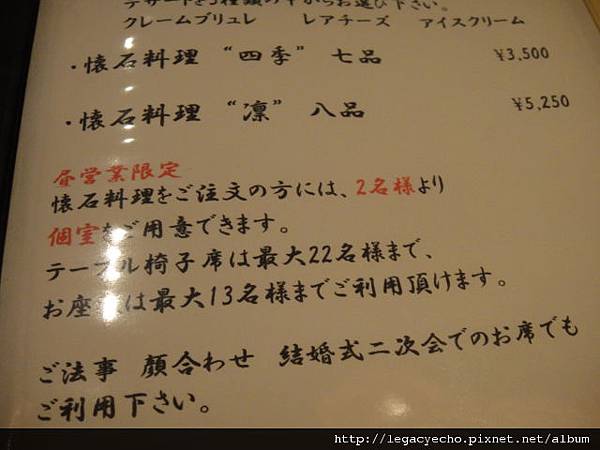 デザートを3種類の中からお選び下さい。
クレームブリュレ レアチーズ アイスクリーム
・懐石料理 “四季” 七品 ¥3,500
・懐石料理 “凛” 八品 ¥5,250
昼営業限定
懐石料理をご注文の方には、2名様より
個室をご用意できます。
テーブル椅子席は最大22名様まで、
お座敷は最大13名様までご利用頂けます。
ご法事 顔合わせ 結婚式二次会でのお席でも
ご利用下さい。
http://legacyecho.pixnet.net/album